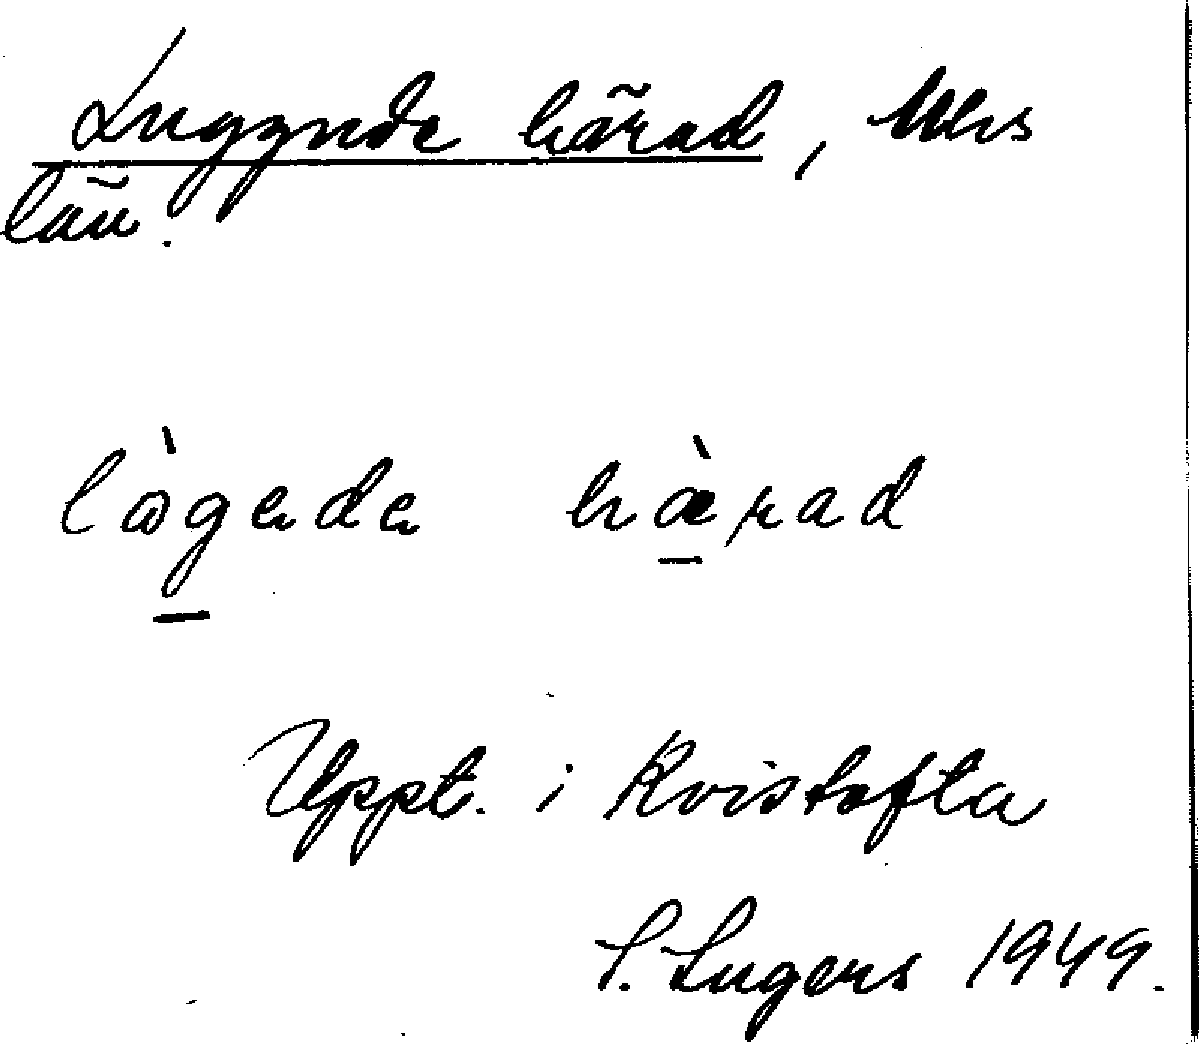 Luggude härad, Mhs
län.
lògada hæ̀rad
Uppt. i Kvistofta
S. Ingers 1949.